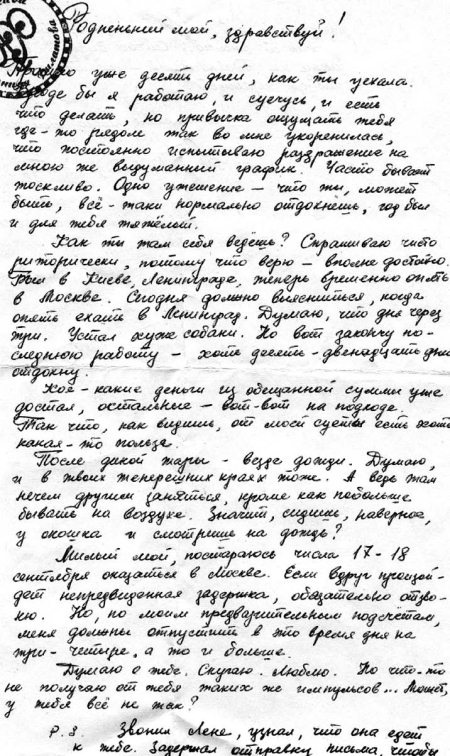 Родненький мой, здравствуй!
Прошло уже десять дней, как ты уехала.
Вроде бы я работаю, и суечусь, и есть
что делать, но привычка ощущать тебя
где-то рядом так во мне укоренилась,
что постоянно испытываю раздражение на
мною же выдуманный график. Часто бывает
тоскливо. Одно утешение – что ты, может
быть, всё-таки нормально отдохнешь, год был
и для тебя тяжёлый.
Как ты там себя ведёшь? Спрашиваю чисто
риторически, потому что верю – вполне достойно.
Был в Киеве, Ленинграде, теперь временно опять
в Москве. Сегодня должно выясниться, когда
опять ехать в Ленинград. Думаю, что дня через
три. Устал хуже собаки. Но вот закончу по-
следнюю работу – хоть десять-двенадцать дней
отдохну.
Кое-какие деньги из обещанной суммы уже
достал, остальные – вот-вот на подходе.
Так что, как видишь, от моей суеты есть хоть
какая-то польза.
После дикой жары – везде дожди. Думаю,
и в твоих теперешних краях тоже. А ведь там
нечем другим заняться, кроме как побольше
бывать на воздухе. Значит, сидишь, наверное,
у окошка и смотришь на дождь?
Милый мой, постараюсь числа 17-18
сентября оказаться в Москве. Если вдруг произой-
дет непредвиденная задержка, обязательно отзво-
ню. Но, по моим предварительным подсчётам,
меня должны отпустить в это время дня на
три-четыре, а то и больше.
Думаю о тебе. Скучаю. Люблю. Но что-то
не получаю от тебя таких же импульсов... Может,
у тебя всё не так?
P.S. Звонил Лене, узнал, что она едет
к тебе. Задержал отправку письма, чтобы